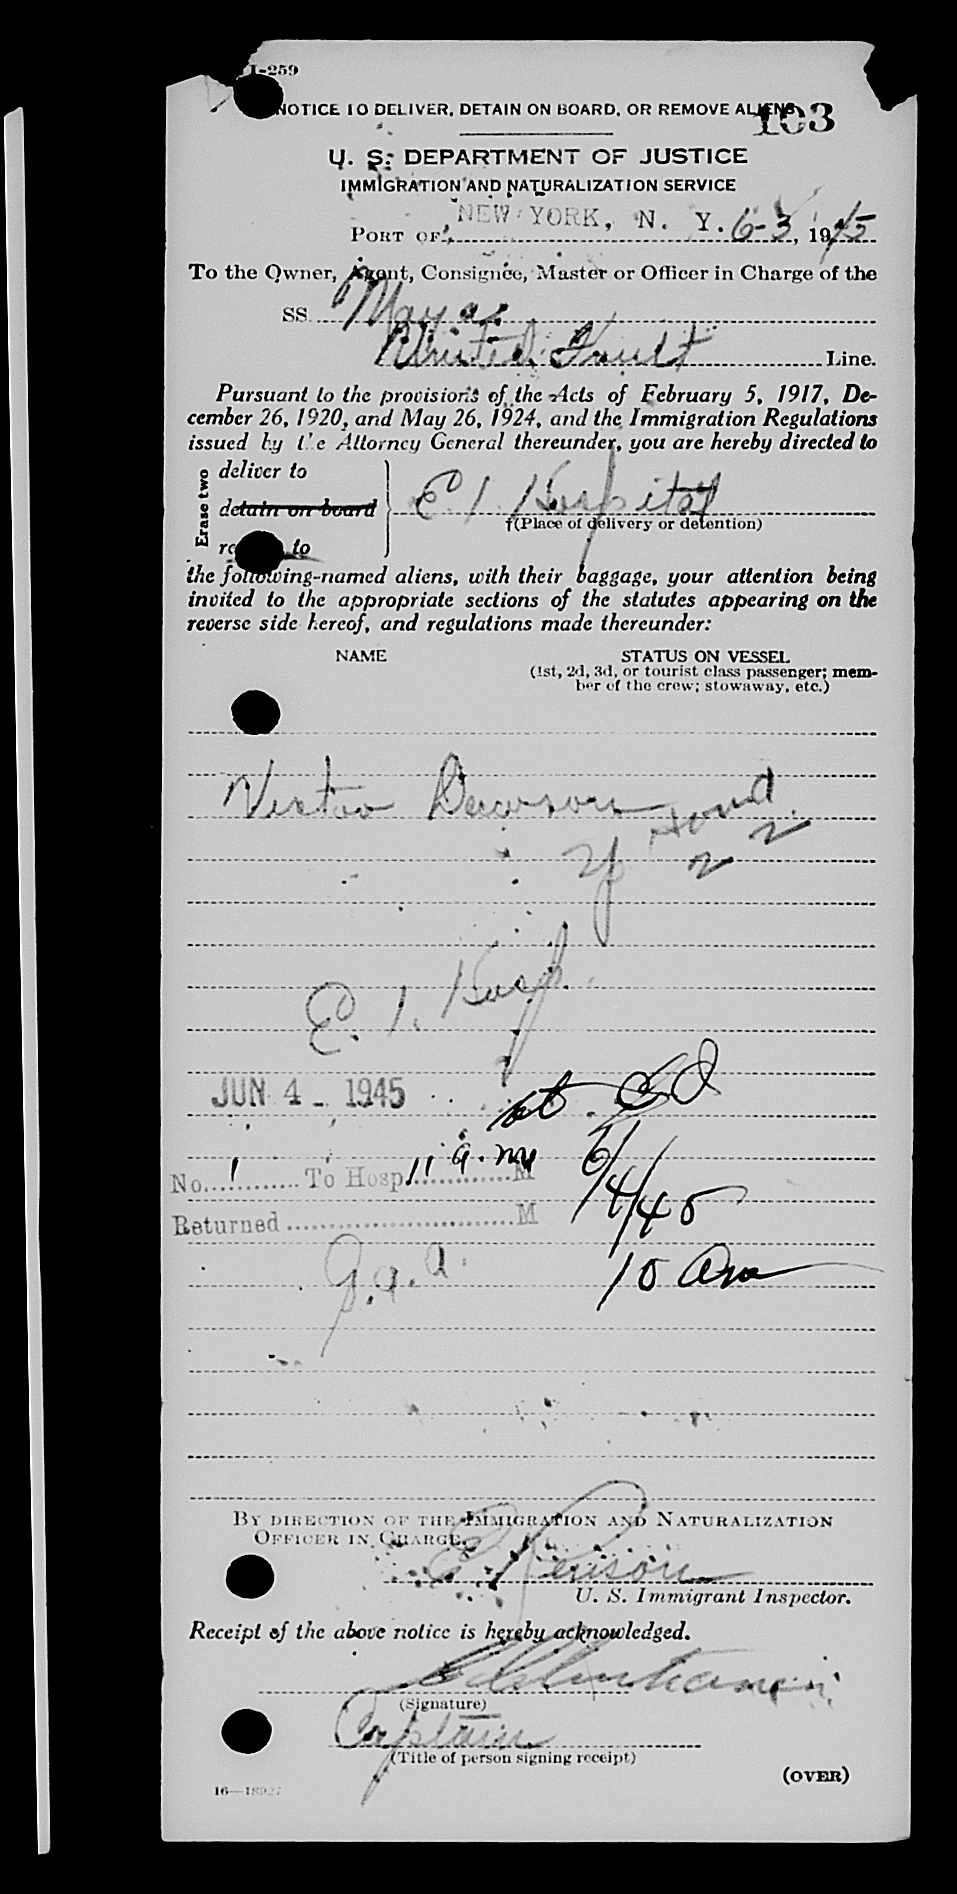 I-259
NOTICE TO DELIVER, DETAIN ON BOARD, OR REMOVE ALIENS
103
U. S. DEPARTMENT OF JUSTICE
IMMIGRATION AND NATURALIZATION SERVICE
PORT OF NEW YORK, N. Y. 6-3, 1945
To the Owner, Agent, Consignee, Master or Officer in Charge of the
SS. Maya
United Fruit Line.
Pursuant to the provisions of the Acts of February 5, 1917, De-
cember 26, 1920, and May 26, 1924, and the Immigration Regulations
issued by the Attorney General thereunder, you are hereby directed to
Erase two
deliver to
detain on board E. I. Hospital
to †(Place of delivery or detention)
the following-named aliens, with their baggage, your attention being
invited to the appropriate sections of the statutes appearing on the
reverse side hereof, and regulations made thereunder:
NAME STATUS ON VESSEL
(1st, 2d, 3d, or tourist class passenger; mem-
ber of the crew; stowaway, etc.)
Victor Dawson
E. I. Hosp.
JUN 4 - 1945
at EI
No. 1 To Hosp. 11 a.m. M
6/4/45
Returned M
10 am
BY DIRECTION OF THE IMMIGRATION AND NATURALIZATION
OFFICER IN CHARGE.
U. S. Immigrant Inspector.
Receipt of the above notice is hereby acknowledged.
(Signature)
Captain
(Title of person signing receipt)
(OVER)
16—18927